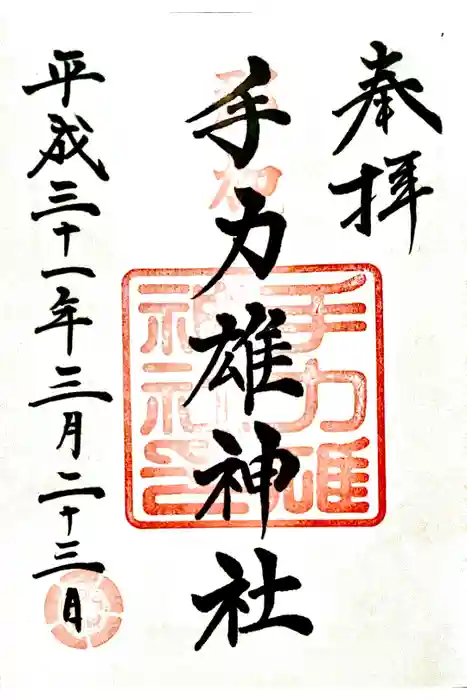 奉拝
手力雄神社
平成三十一年三月二十三日
手力雄
神社